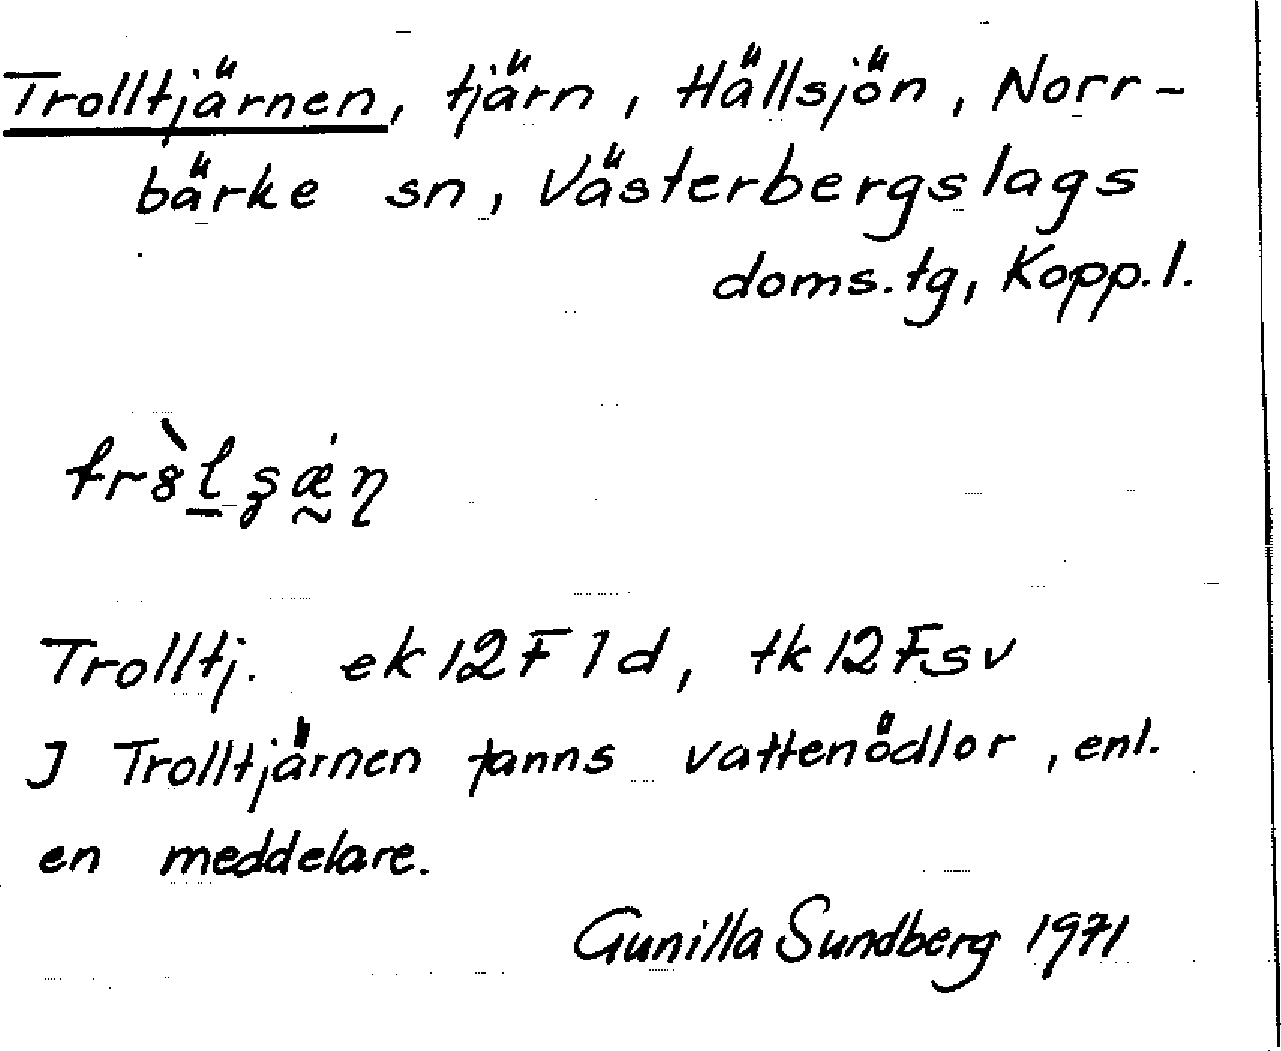 Trolltjärnen, tjärn, Hällsjön, Norr-
bärke sn, Västerbergslags
doms.tg, Kopp.l.
Trolltj. ek 12F1d, tk 12F sv
I Trolltjärnen fanns vattenödlor, enl.
en meddelare.
Gunilla Sundberg 1971